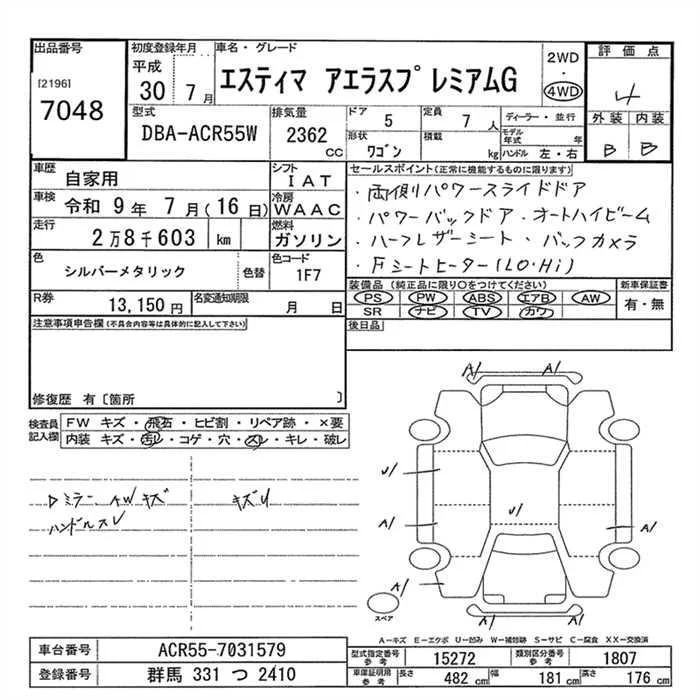 出品番号
[2196]
7048
初度登録年月
平成
30 7月
車名・グレード
エスティマ アエラスプレミアムG
2WD
・
4WD
評価点
4
外装 内装
B B
型式
DBA-ACR55W
排気量
2362
cc
ドア
5
定員
7人
形状
ワゴン
積載
kg
ディーラー・並行
モデル
年式 年
ハンドル 左・右
車歴
自家用
シフト
IAT
車検
令和 9年 7月(16日)
冷房
WAAC
走行
2万8千603 km
燃料
ガソリン
色
シルバーメタリック
色替
色コード
1F7
セールスポイント(正常に機能するものに限ります)
・両側パワースライドドア
・パワーバックドア・オートハイビーム
・ハーフレザーシート・バックカメラ
・Fシートヒーター(LO・Hi)
装備品(純正品に限り○をつけてください)
PS PW ABS エアB AW
SR ナビ TV カワ
新車保証書
有・無
後日品
R券
13,150円
名変通知期限
月 日
注意事項申告欄(不具合内容等は具体的に記入して下さい)
修復歴 有〔箇所 〕
検査員
記入欄
FW キズ・飛石・ヒビ割・リペア跡・×要
内装 キズ・汚レ・コゲ・穴・スレ・キレ・破レ
Dミラー、AWキズ
キズU
ハンドルスレ
A/ A/
U/
U/
A/
A/
A/
A/
スペア
A-キズ E-エクボ U-凹み W-補修跡 S-サビ C-腐食 XX-交換済
車台番号
ACR55-7031579
登録番号
群馬 331 つ 2410
型式指定番号
参考
15272
類別区分番号
参考
1807
車庫証明用
参考
長さ 482 cm
幅 181 cm
高さ 176 cm